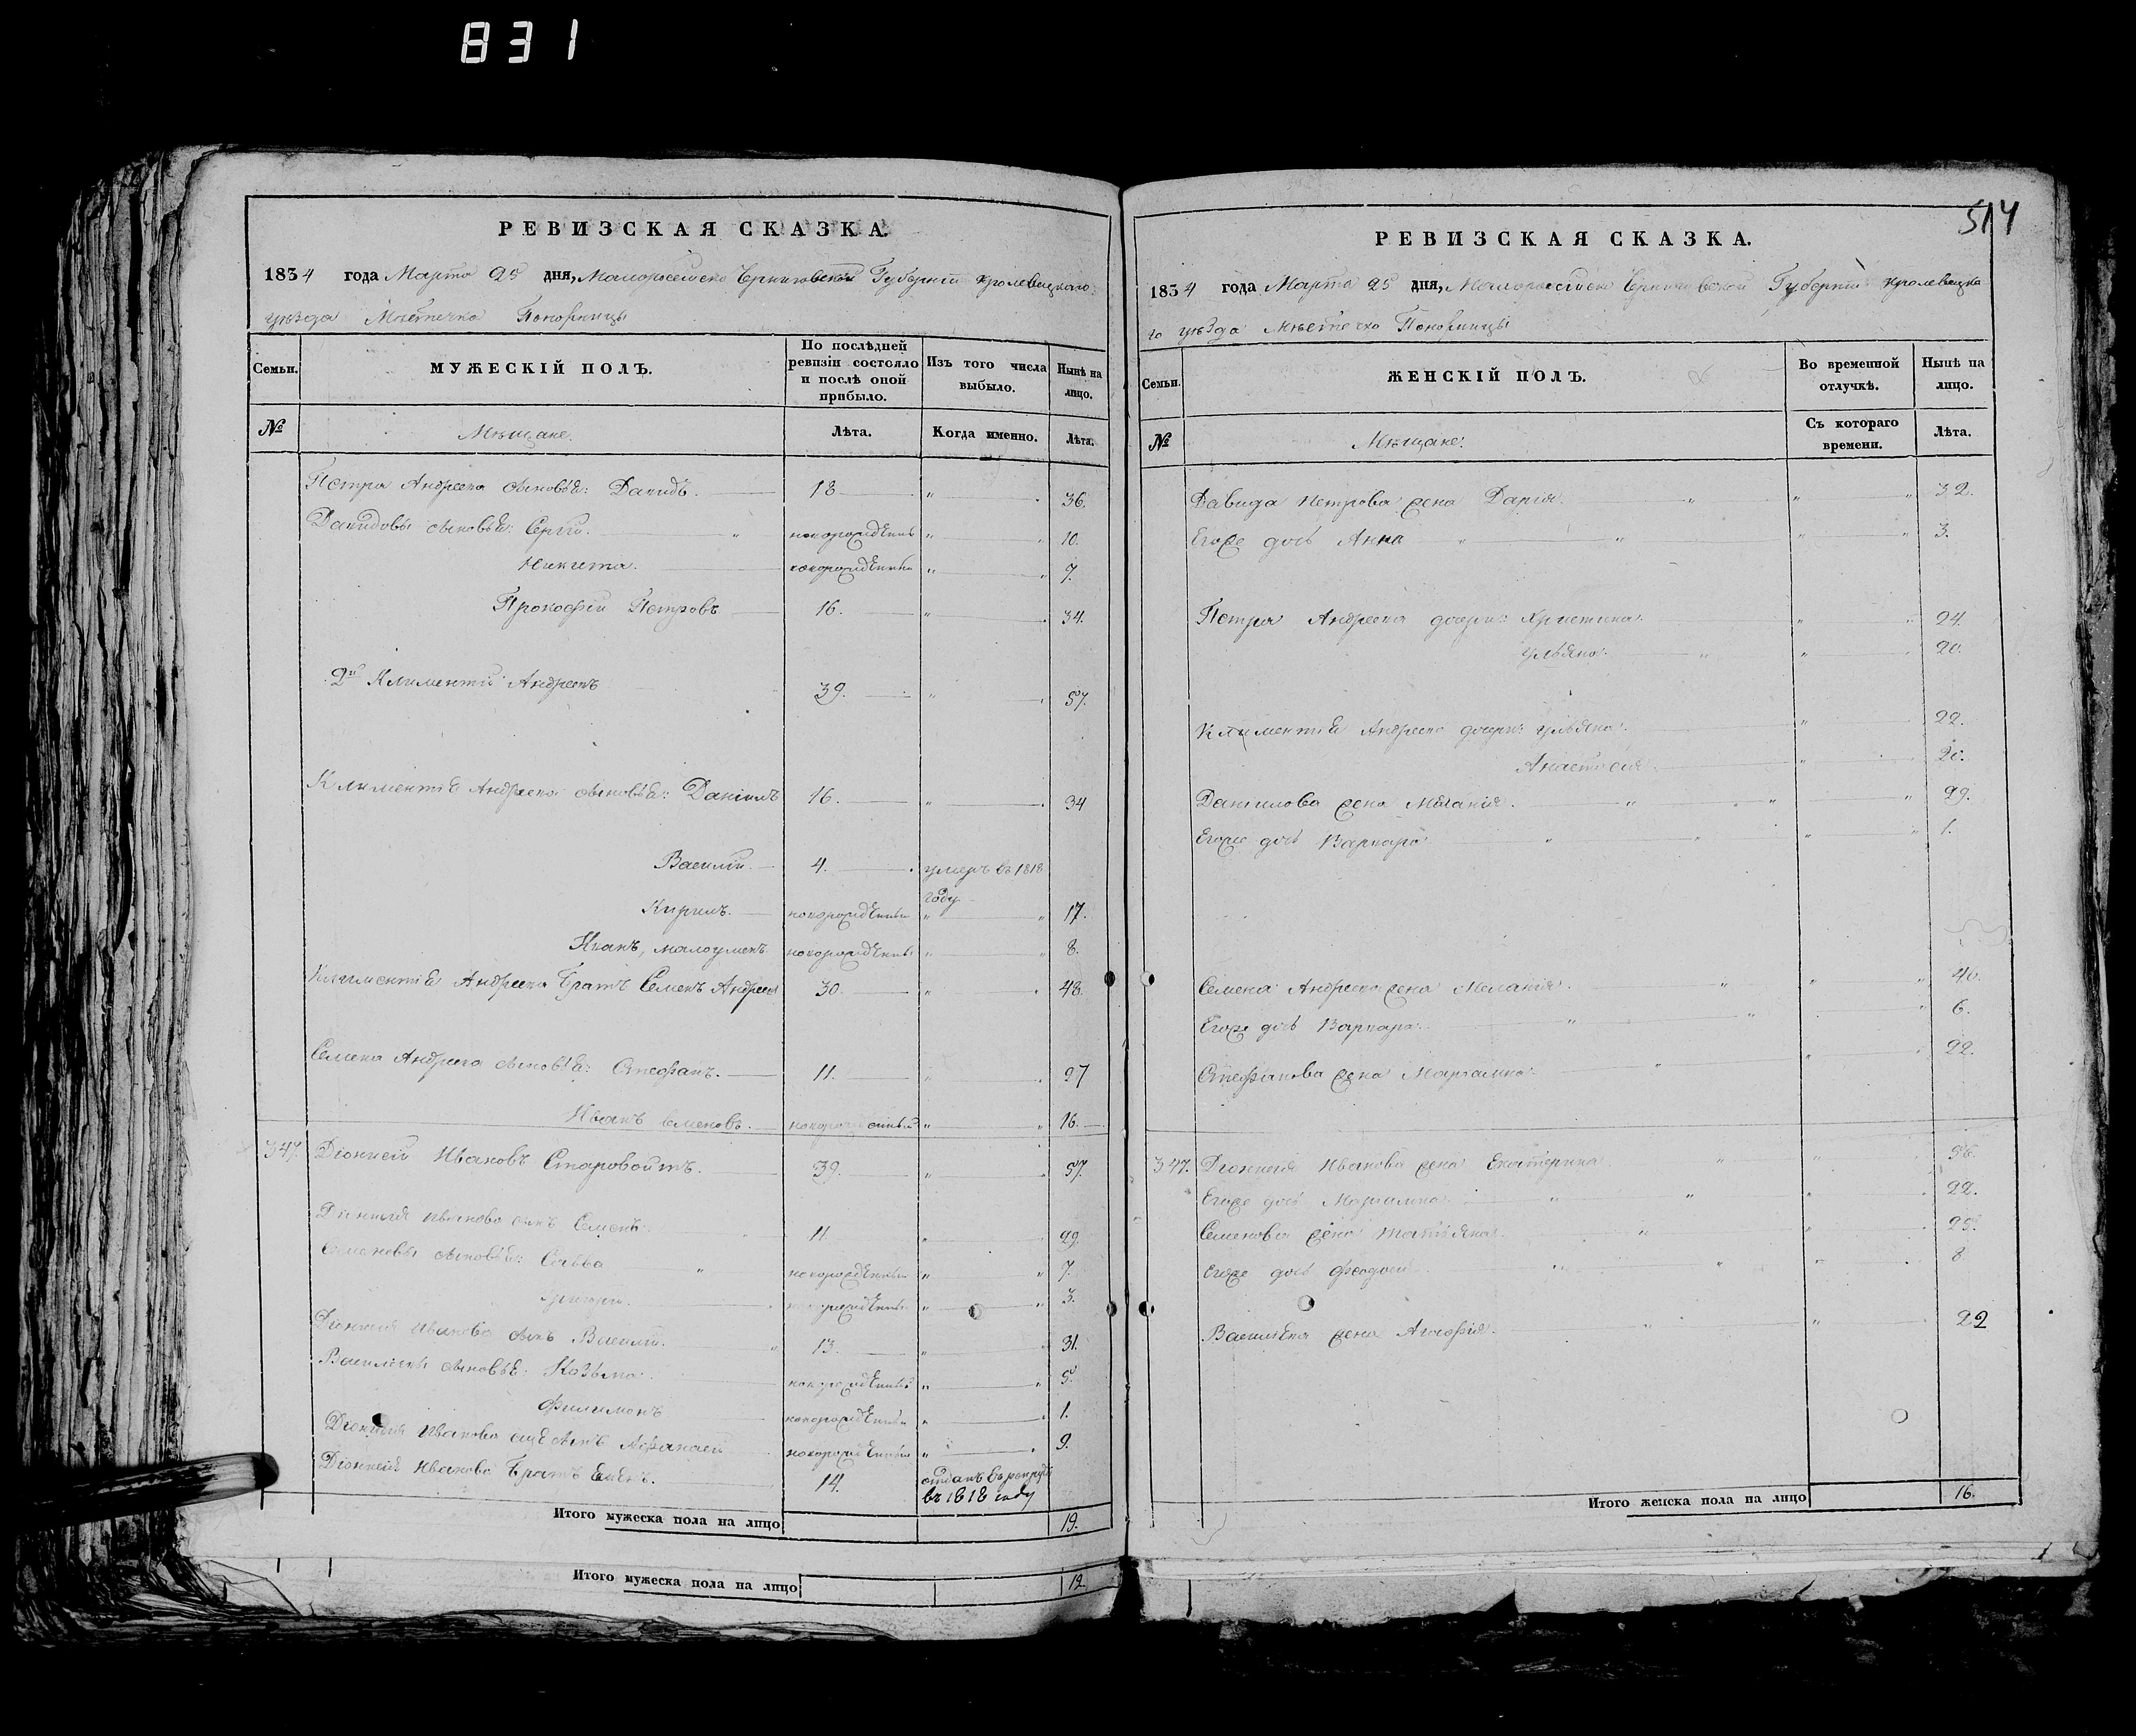 831
514
РЕВИЗСКАЯ СКАЗКА.
1834 года Марта 25 дня, Малоросийско Черниговской Губерніи Кролевецкаго
уѣзда Мѣстечка Понорницы
Семьи. МУЖЕСКІЙ ПОЛЪ. По послѣдней ревизіи состояло и послѣ оной прибыло. Изъ того числа выбыло. Нынѣ на лицо.
№ Мѣщане. Лѣта. Когда именно. Лѣта.
Петра Андреева сыновья: Давидъ. 18. " 36.
Давидовы сыновья: Сергій. " новорожденный " " 10.
Никита. новорожденный " " 7.
Прокофій Петровъ 16. " 34.
2й Климентій Андреевъ 39. " 57.
Климентія Андреева сыновья: Даніилъ 16. " 34
Василій. 4. умеръ въ 1818
году
Кирилъ. новорожденный " " 17.
Иванъ, малоуменъ новорожденный " " 8.
Климентія Андреева братъ Семенъ Андреевъ 30. " 48.
Семена Андреева сыновья: Стефанъ. 11. " 27
Иванъ Семеновъ. новорожденный " " 16.
347. Діонисій Ивановъ Старовойтъ. 39. " 57.
Діонисія Иванова сынъ Семенъ 11 " 29.
Семеновы сыновья: Савва " новорожденный " " 7.
новорожденный " " 3.
Діонисія Иванова сынъ Василій. " 13. " 31.
Василіевы сыновья: Козьма. новорожденный " " 5.
Филимонъ новорожденный " 1.
Діонисія Иванова еще сынъ Афанасій новорожденный " 9.
Діонисія Иванова братъ 14. отданъ въ рекруты
въ 1818 году
Итого мужеска пола на лицо 19.
Итого мужеска пола на лицо 12.
РЕВИЗСКАЯ СКАЗКА.
1834 года Марта 25 дня, Малоросийско Черниговской Губерніи Кролевецка
го уѣзда Мѣстечко Понорницы
Семьи. ЖЕНСКІЙ ПОЛЪ. Во временной отлучкѣ. Нынѣ на лицо.
№ Мѣщане. Съ котораго времени. Лѣта.
Давида Петрова жена Дарія. " " " 32.
Егоже дочь Анна " " " " 3.
Петра Андреева дочери: Христина. " " 24.
Ульяна. " " 20.
Климентія Андреева дочери: Ульяна. " 22.
Анастасія " 20.
Данилова жена Меланія. " " " 29.
Егоже дочь Варвара " " " 1.
Семена Андреева жена Меланія. " " " 40.
Егоже дочь Варвара. " " " 6.
Стефанова жена Марѳамна. " " 22.
347. Діонисія Иванова жена Екатерина " "
Егоже дочь " " " 22.
Семенова жена Татьяна. " " 25.
Егоже дочь Феодосія " " " 8
Васильева жена Агафія. " " 22
Итого женска пола на лицо 16.